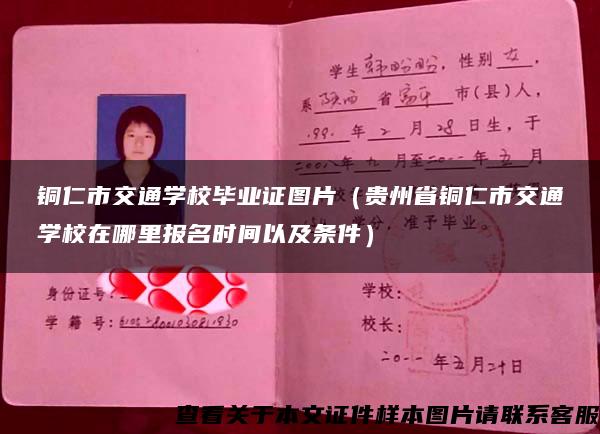 学生韩盼盼，性别女，
系陕西省富平市(县)人，
1991年2月28日生，于
二〇〇八年九月至二〇一一年五月
铜仁市交通学校毕业证图片（贵州省铜仁市交通
学校在哪里报名时间以及条件）
学分，准予毕业。
身份证号：
学籍号：
学校：
校长：
二〇一一年五月二十日
查看关于本文证件样本图片请联系客服